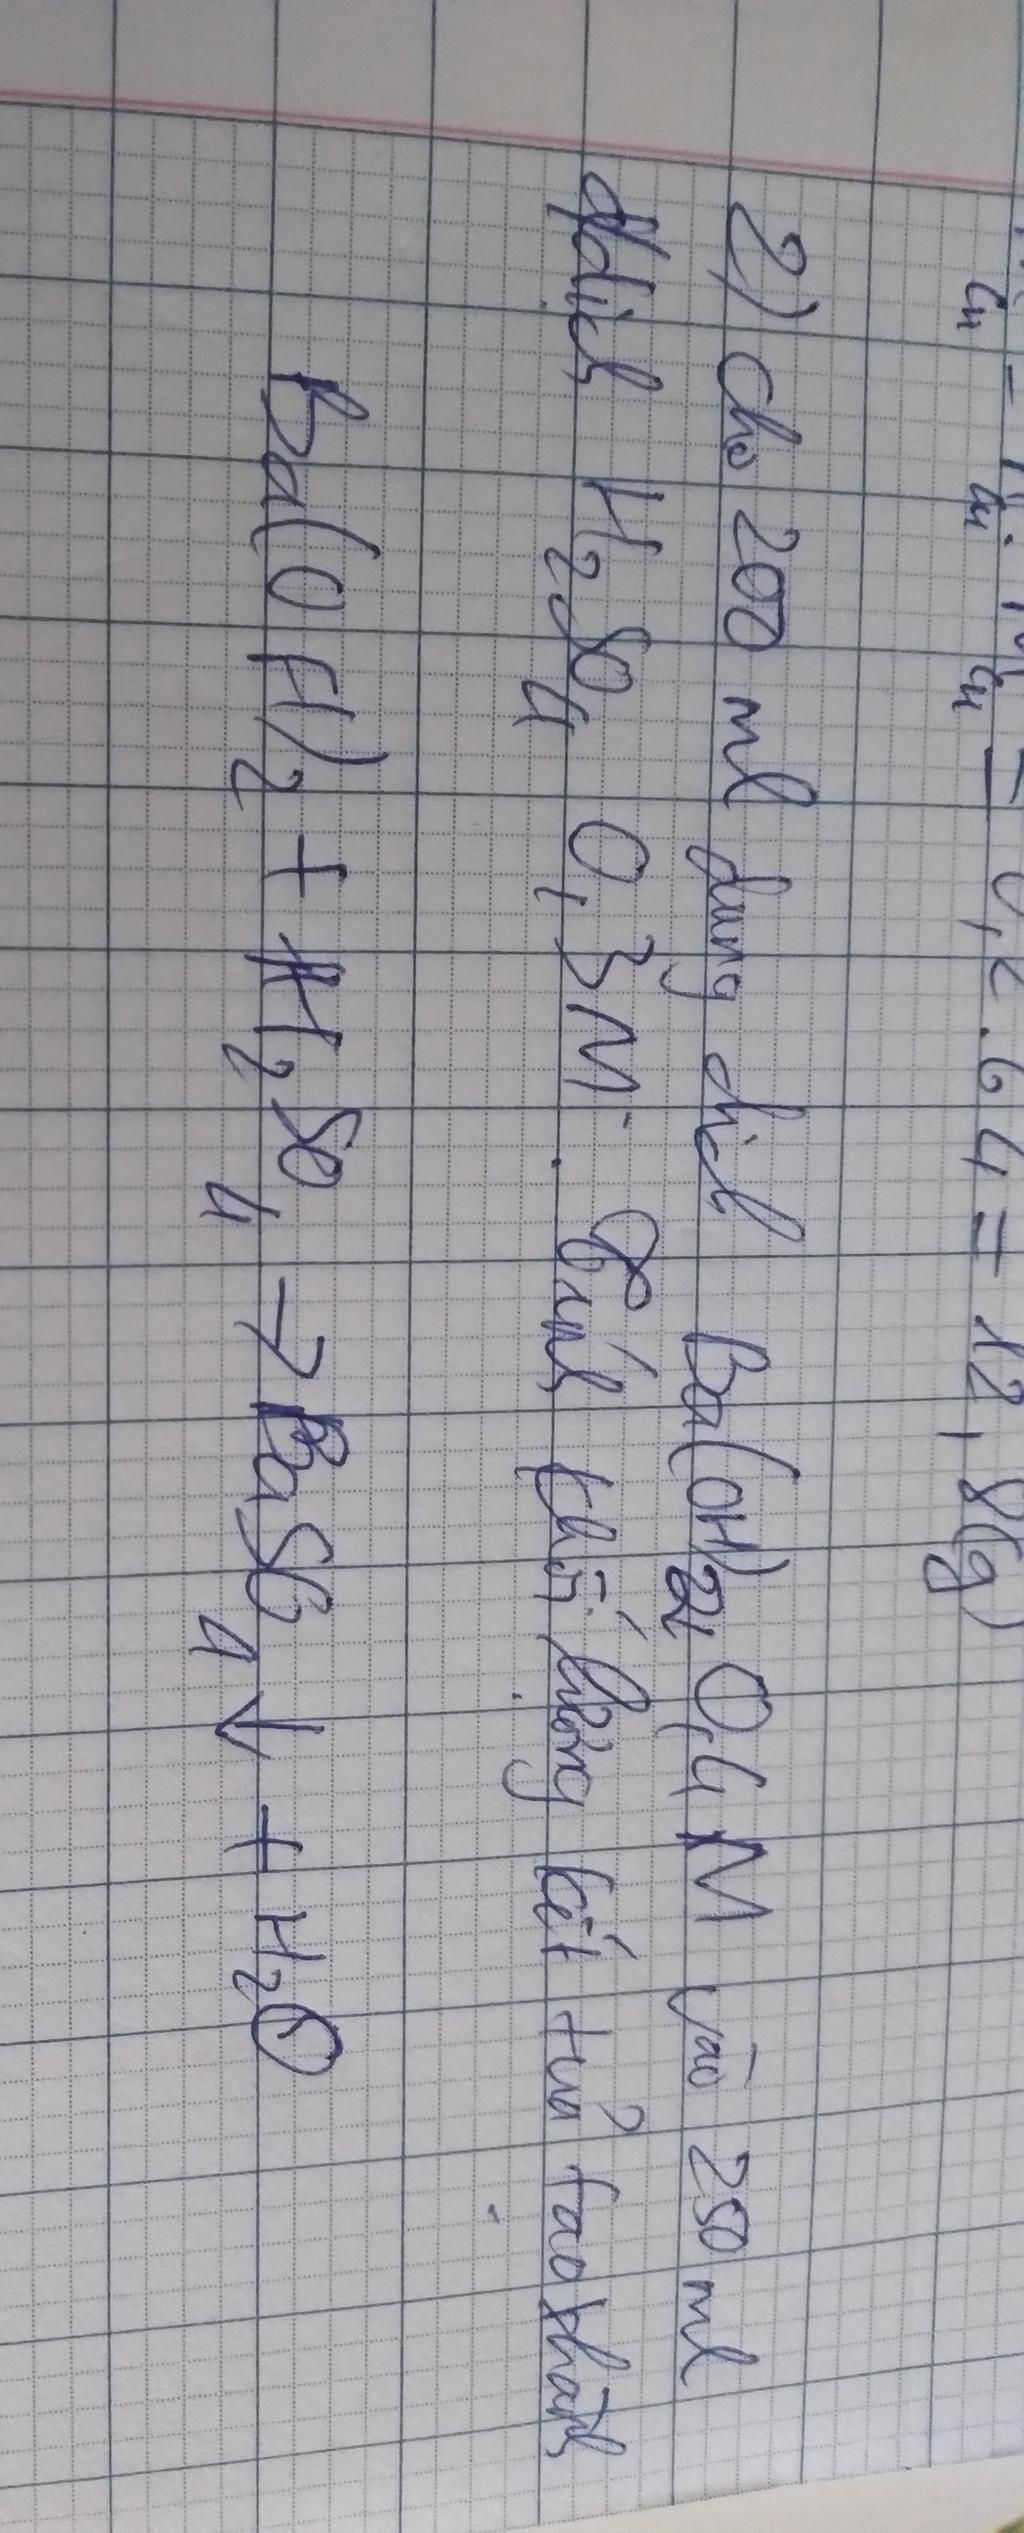 Cu = n Cu . M Cu = 0,2 . 64 = 12,8(g)
2) Cho 200 ml dung dịch Ba(OH)2 0,4M vào 250 ml
dd dịch H2SO4 0,3M. Tính khối lượng kết tủa tạo thành
Ba(OH)2 + H2SO4 → BaSO4 ↓ + H2O